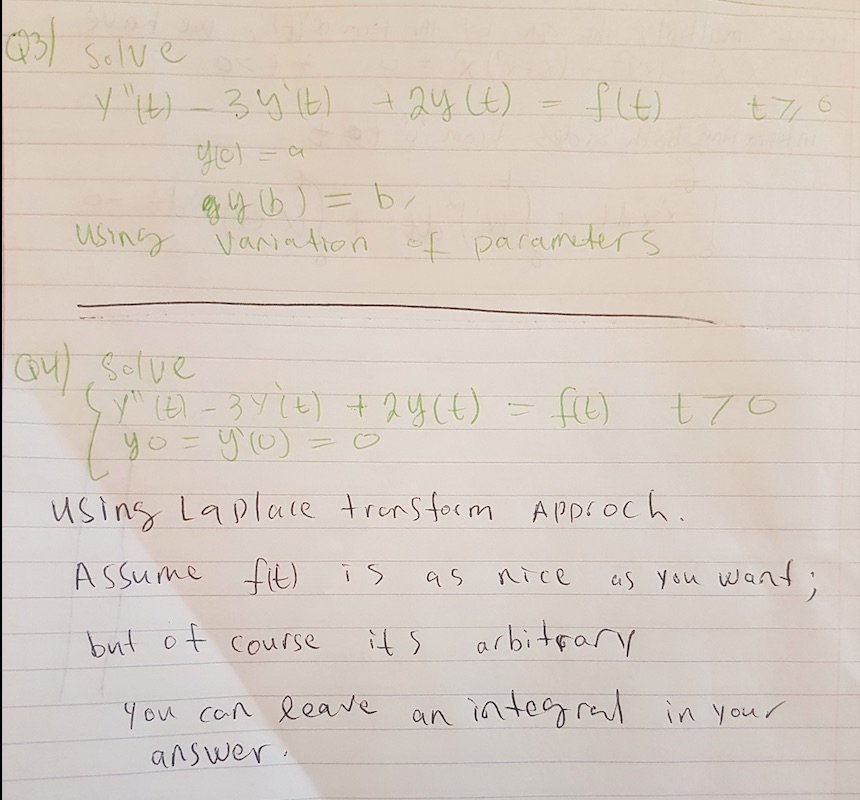 Q3) Solve
y"(t) - 3y'(t) + 2y(t) = f(t) t ≥ 0
y(0) = a
y(b) = b,
using variation of parameters
Q4) Solve
y"(t) - 3y'(t) + 2y(t) = f(t) t > 0
y0 = y'(0) = 0
using Laplace transform Approch.
Assume f(t) is as nice as you want;
but of course its arbitrary
you can leave an integral in your
answer.